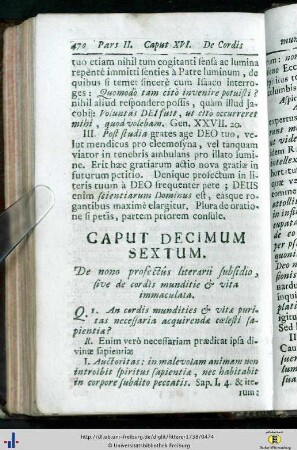 470 Pars II. Caput XVI. De Cordis
tuo etiam nihil tum cogitanti sensa ac lumina
repentè immitti senties à Patre luminum, de
quibus si temet sincerè cum Isaaco interro-
ges: Quomodò tam citò invenire potuisti?
nihil aliud respondere possis, quàm illud Ja-
cobi: Voluntas DEI fuit, ut citò occurreret
mihi, quod volebam. Gen. XXVII. 20.
III. Post studia grates age DEO tuo, ve-
lut mendicus pro eleemosyna, vel tanquam
viator in tenebris ambulans pro illato lumi-
ne. Erit hæc gratiarum actio nova gratiæ in
futurum petitio. Denique profectum in li-
teris tuum à DEO frequenter pete; DEUS
enim scientiarum Dominus est, easque ro-
gantibus maximè elargitur. Plura de oratio-
ne si petis, partem priorem consule.
CAPUT DECIMUM
SEXTUM.
De nono profectûs literarii subsidio,
sive de cordis munditie & vita
immaculata.
Q. 1. An cordis mundities & vitæ puri-
tas necessaria acquirendæ cœlesti sa-
pientiæ?
R. Enim verò necessariam prædicat ipsa di-
vinæ sapientiæ
I. Auctoritas: in malevolam animam non
introibit spiritus sapientiæ, nec habitabit
in corpore subdito peccatis. Sap. I. 4. & ite-
rum:
http://dl.ub.uni-freiburg.de/diglit/litterer1738/0474
Universitätsbibliothek Freiburg